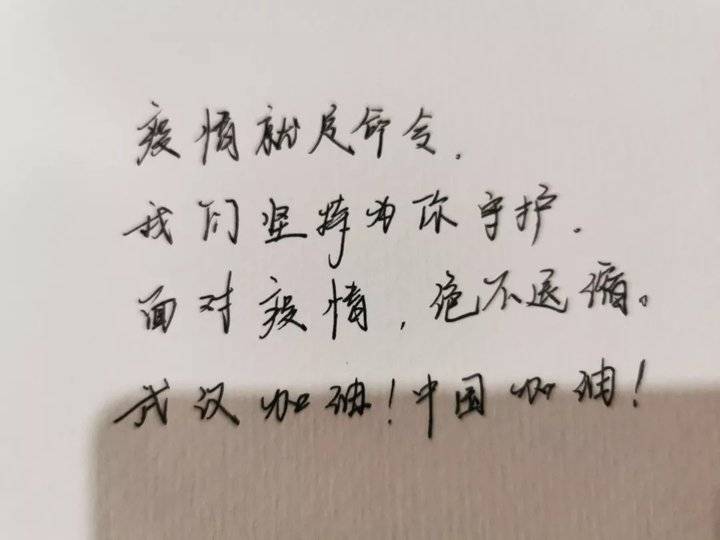 疫情就是命令.
我们坚持为你守护.
面对疫情,绝不退缩。
武汉加油!中国加油!